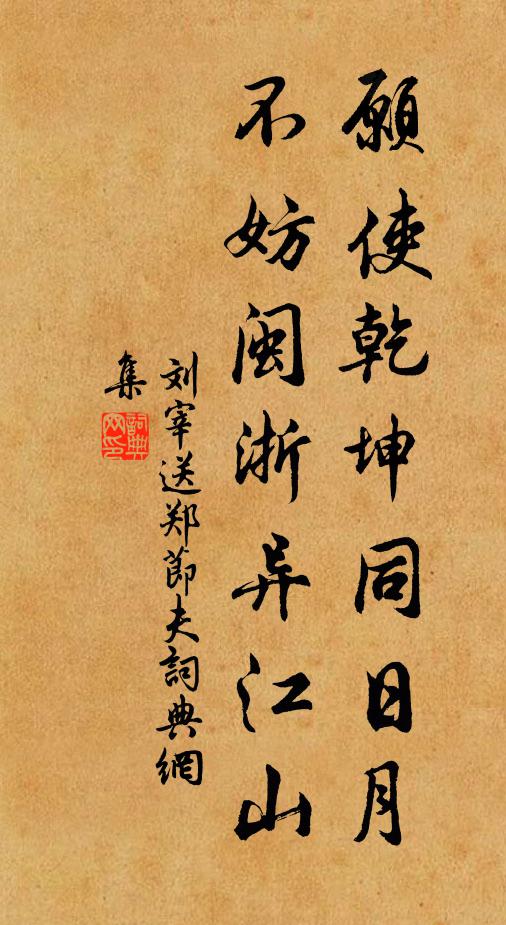 願使乾坤同日月
不妨闽浙异江山
刘宰送郑節夫詞典網
集
詞典网印